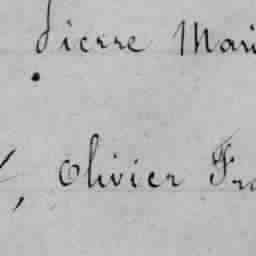 Pierre Mari
, Olivier Fra